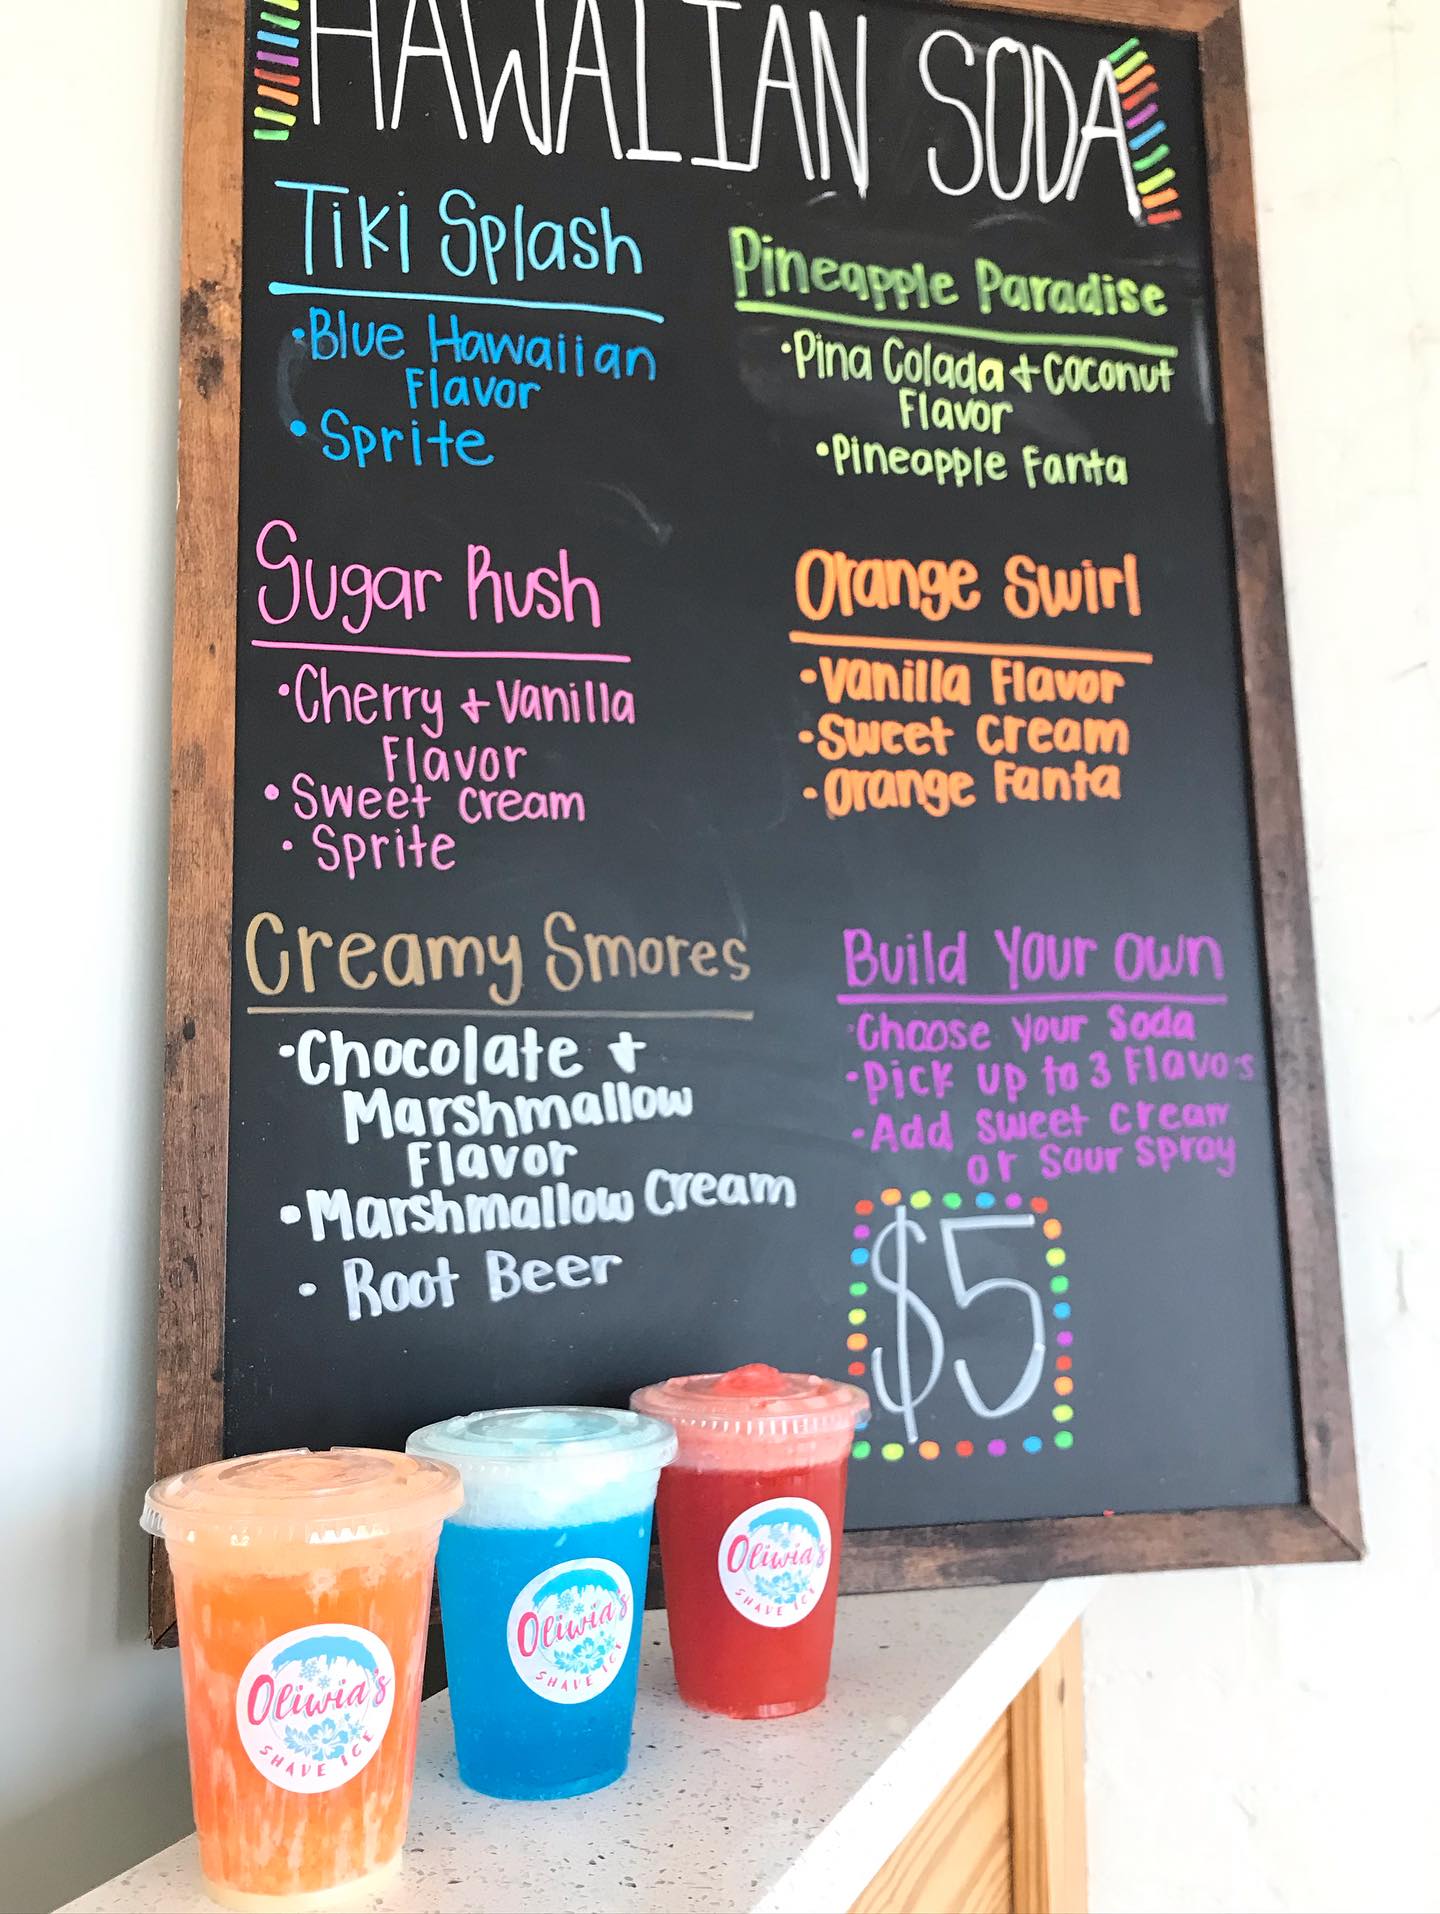 HAWAIIAN SODA
Tiki Splash
•Blue Hawaiian
Flavor
•Sprite
Pineapple Paradise
•Pina Colada + Coconut
Flavor
•Pineapple Fanta
Sugar Rush
•Cherry + Vanilla
Flavor
•Sweet Cream
•Sprite
Orange Swirl
•Vanilla Flavor
•Sweet Cream
•Orange Fanta
Creamy Smores
•Chocolate +
Marshmallow
Flavor
•Marshmallow Cream
•Root Beer
Build Your Own
•Choose Your Soda
•Pick up to 3 Flavors
•Add Sweet Cream
or Sour Spray
$5
Oliwia's
SHAVE ICE
Oliwia's
SHAVE ICE
Oliwia's
SHAVE ICE